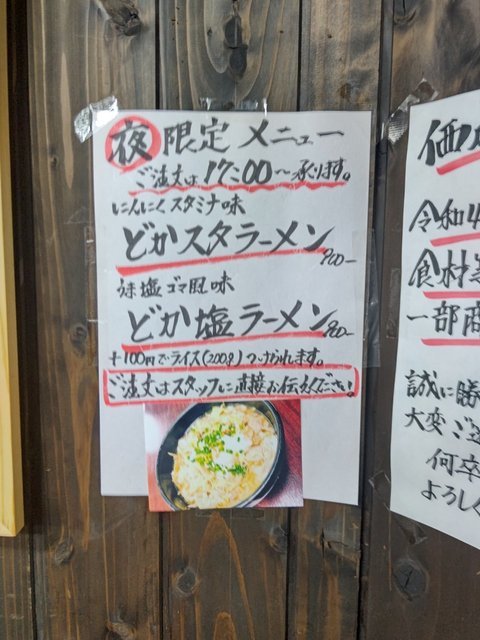 夜限定メニュー
ご注文は17:00〜承ります。
にんにくスタミナ味
どかスタラーメン 900-
うま塩ゴマ風味
どか塩ラーメン 900-
+100円でライス(200g)つけられます。
ご注文はスタッフに直接お伝えください!
価
令和4
食材
一部商
誠に勝
大変ご
何卒
よろし